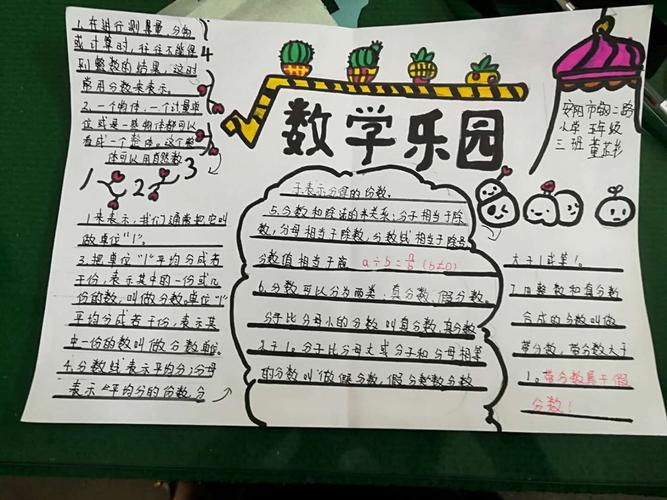 数学乐园
安阳市钢二路
小学 五年级
三班
1.在进行测量、分物
或计算时,往往不能得
到整数的结果,这时
常用分数来表示。
2.一个物体、一个计量单
位或是一些物体都可以
看成一个整体。这个整
体可以用自然数
1 2 3 4
1来表示,我们通常把它叫
做单位"1"。
3.把单位"1"平均分成若
干份,表示其中的一份或几
份的数,叫做分数。单位"1"
平均分成若干份,表示其
中一份的数叫做分数单位。
4.分数线表示平均分;分母
表示"平均分的份数,分
子表示分得的份数。
5.分数和除法的本关系:分子相当于除
数,分母相当于除数,分数线相当于除号
分数值相当于商 a÷b=a/b (b≠0)
6.分数可以分为两类:真分数、假分数。
分子比分母小的分数叫真分数,真分数
之于1。分子比分母大或分子和分母相等
的分数叫做假分数,假分数分数
大于1或等1。
7.由整数和真分数
合成的分数叫做
带分数,带分数大于
1。带分数属于假
分数!